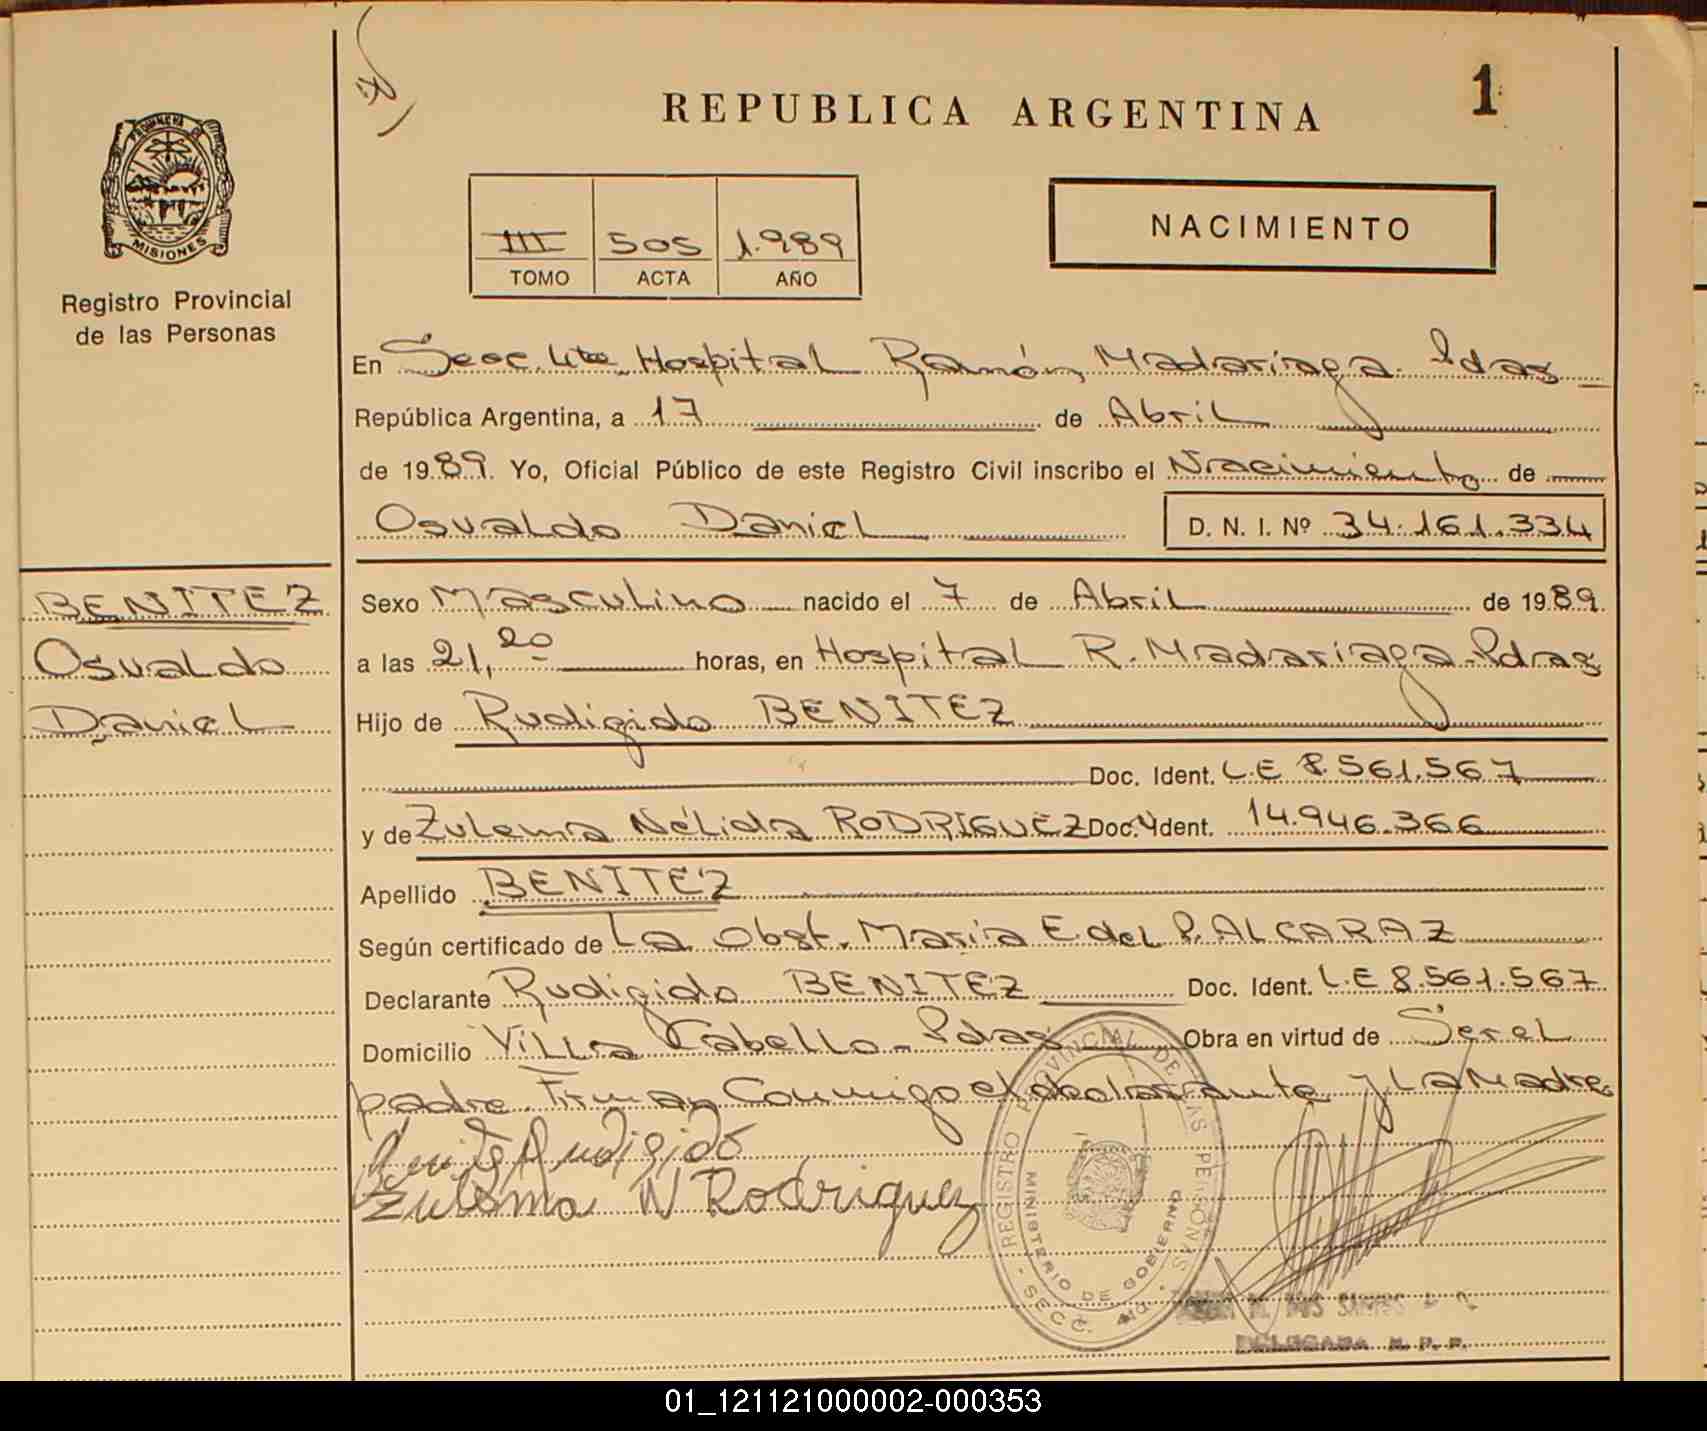 1
REPUBLICA ARGENTINA
PROVINCIA DE
MISIONES
Registro Provincial
de las Personas
NACIMIENTO
III 505 1.989
TOMO ACTA AÑO
En Secc. 4ta Hospital Ramón Madariaga Pdas
República Argentina, a 17 de Abril
de 1989. Yo, Oficial Público de este Registro Civil inscribo el Nacimiento de
Osvaldo Daniel D. N. I. Nº 34.161.334
BENITEZ
Osvaldo
Daniel
Sexo Masculino nacido el 7 de Abril de 1989.
a las 21,20 horas, en Hospital R. Madariaga-Pdas
Hijo de Rudigido BENITEZ
Doc. Ident. L.E 8.561.567
y de Zulema Nélida RODRIGUEZ Doc. Ident. 14.946.366
Apellido BENITEZ
Según certificado de La Obst. María E. del P. ALCARAZ
Declarante Rudigido BENITEZ Doc. Ident. L.E 8.561.567
Domicilio Villa Cabello - Pdas Obra en virtud de Ser el
padre. Firman Conmigo el declarante y La Madre
Benitez Rudigido
Zulema N Rodriguez
REGISTRO PROVINCIAL DE LAS PERSONAS
MINISTERIO DE GOBIERNO
- SECC. 4ta -
M. DOS SANTOS
DELEGADA R. P. P.
01_121121000002-000353